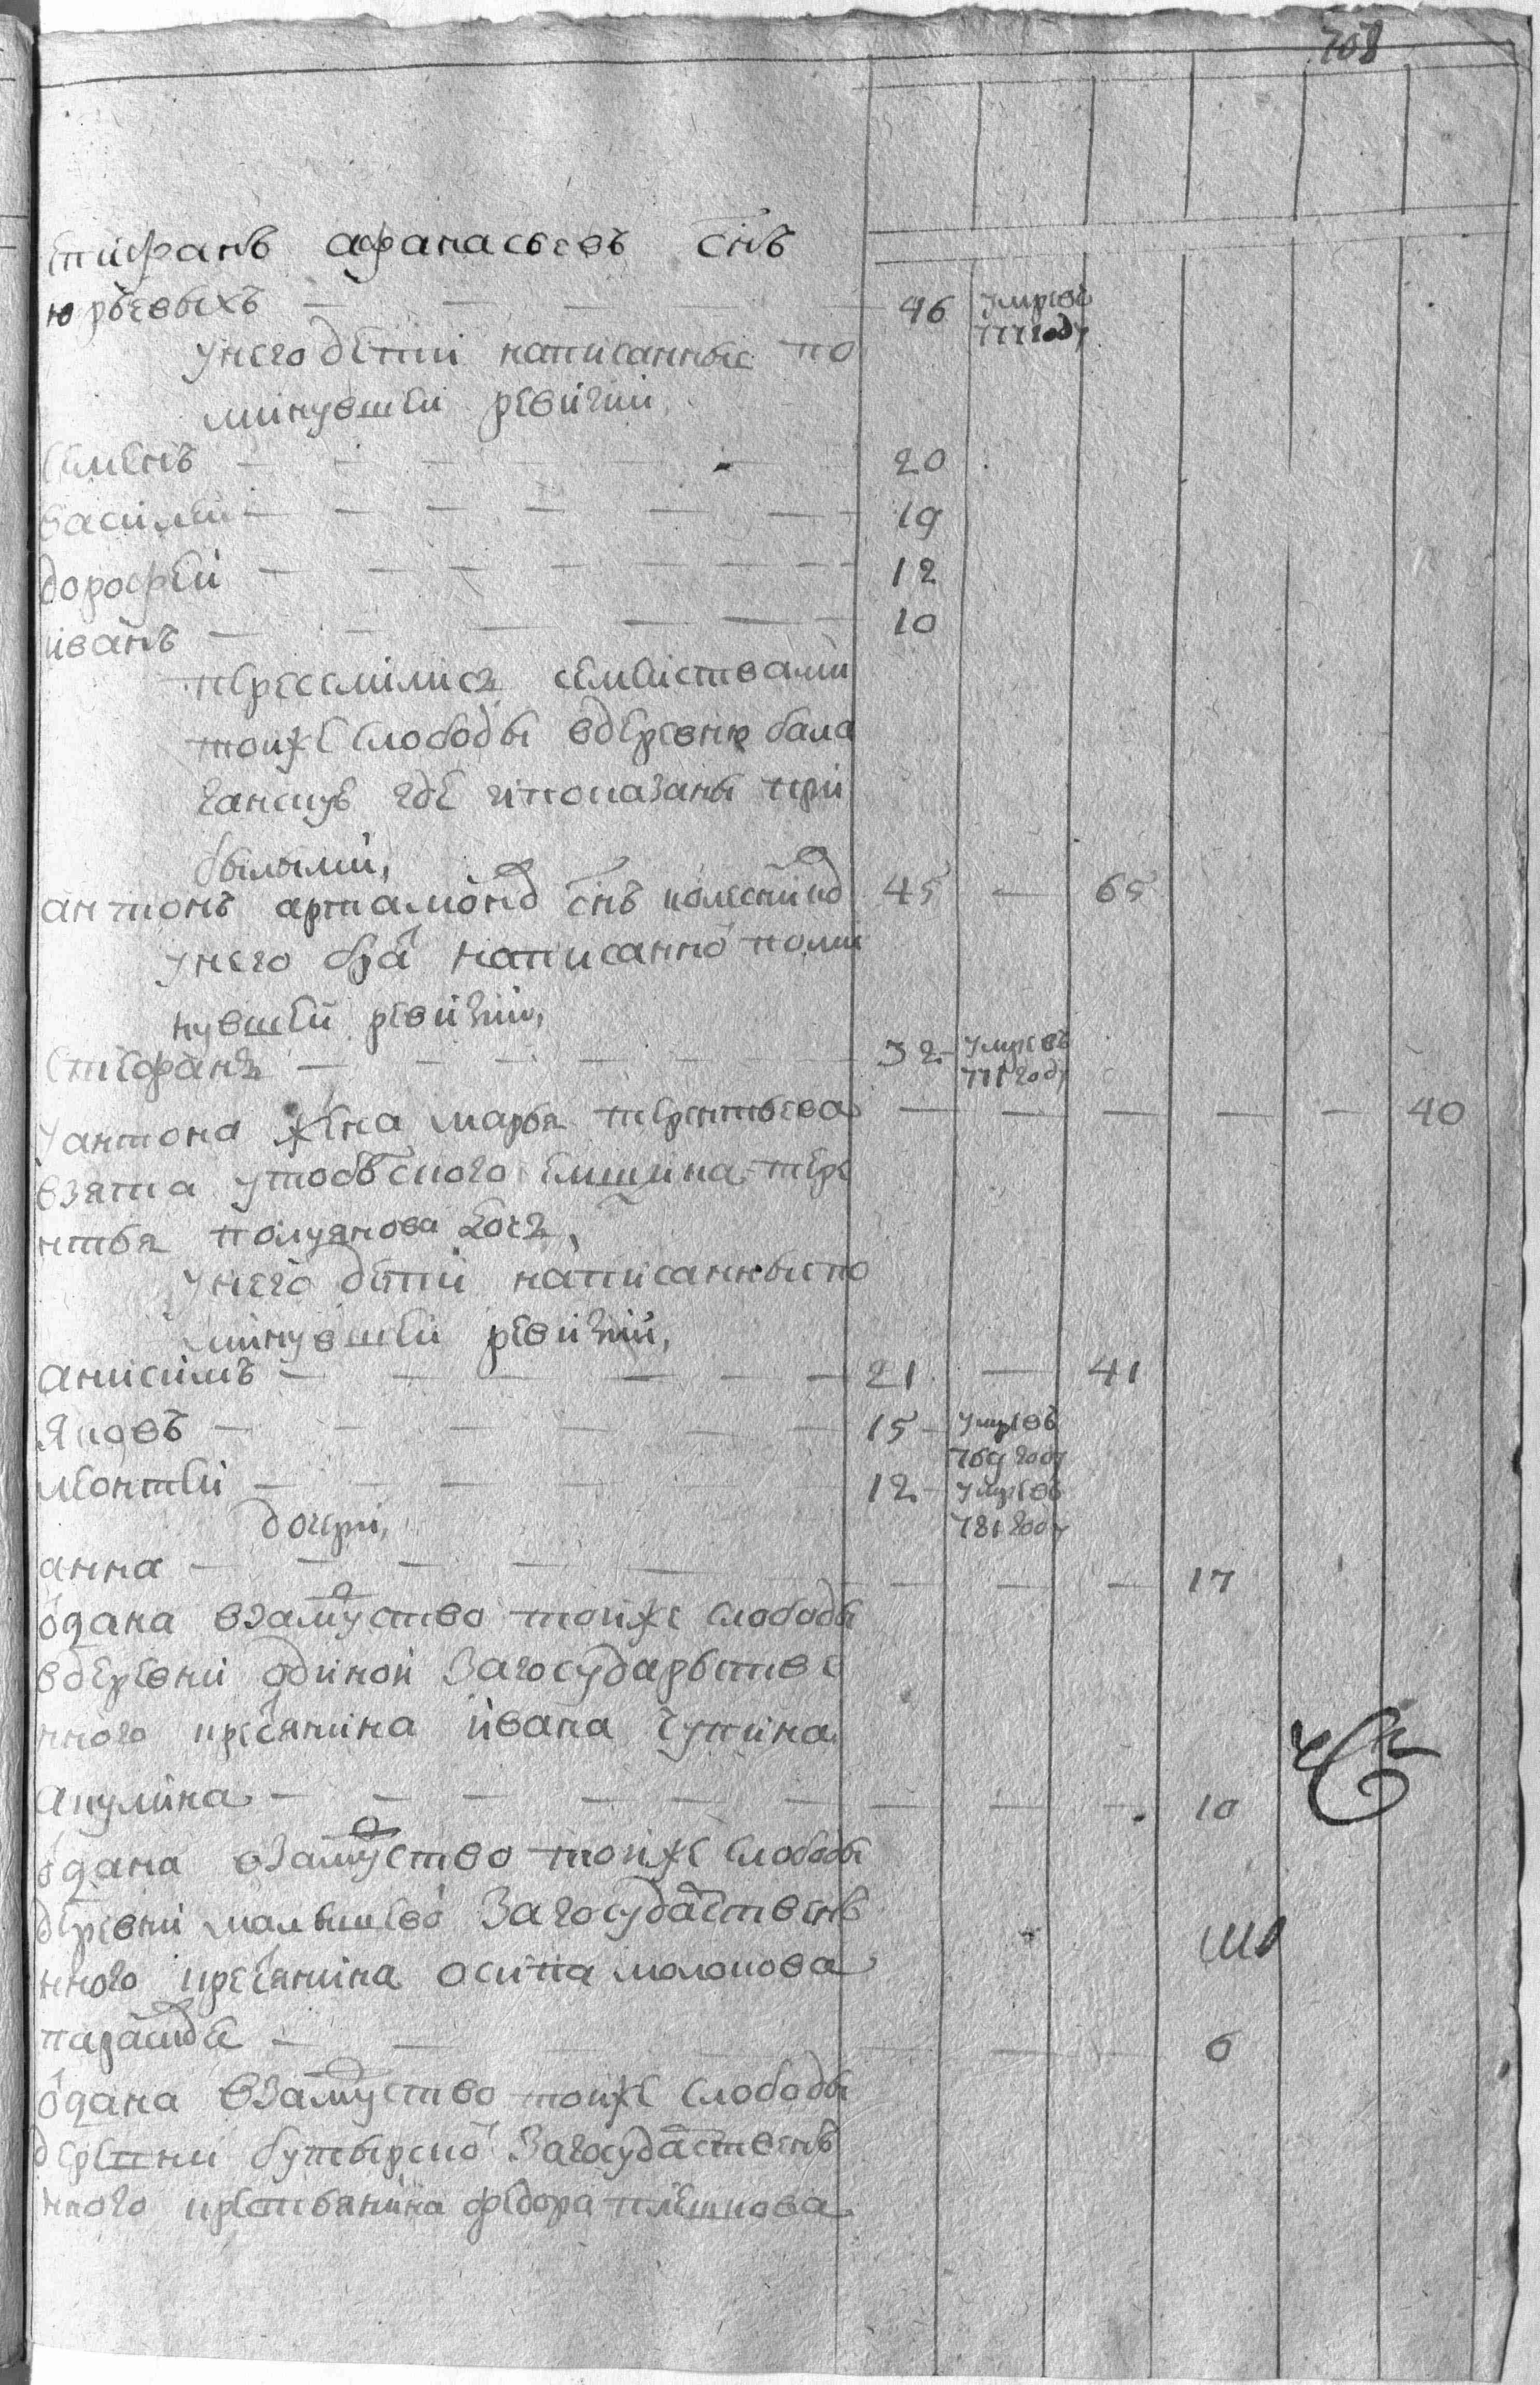 708
епифанъ афанасьевъ снъ
юрьевыхъ — — — — 46 умре въ
771 году
у него дети написанные по
минувшей ревизии
семенъ — — — — 20
василей — — — — 19
дорофей — — — — 12
иванъ — — — — 10
переселились семействами
тойже слободы вдеревню бала
ганскую где и показаны при
былыми,
антонъ артамоно снъ 45 — 65
унего бра написанно поми
нувшей ревизии,
степанъ — — — — 32 умре въ
771 году
уантона жена марья терентьева — — — — — 40
взята у емщика тере
нтья полуянова дочь,
унего дети написанные по
минувшей ревизии,
анисимъ — — — — 21 — 41
яковъ — — — — 15 умре въ
769 году
леонтей — — — — 12 умре въ
781 году
дочери,
анна — — — — — — — 17
одана взамуство тойже слободы
вдеревни одиной загосударьстве
нного кресянина ивана чупина
акулина — — — — — — — 10
одана взамуство тойже слободы
деревни малышево загосудаственъ
нного кресянина осипа молокова
парасковя — — — — — — 6
одана взамуство тойже слободы
деревни бутырско загосудаственъ
нного крестьянина федора плешкова